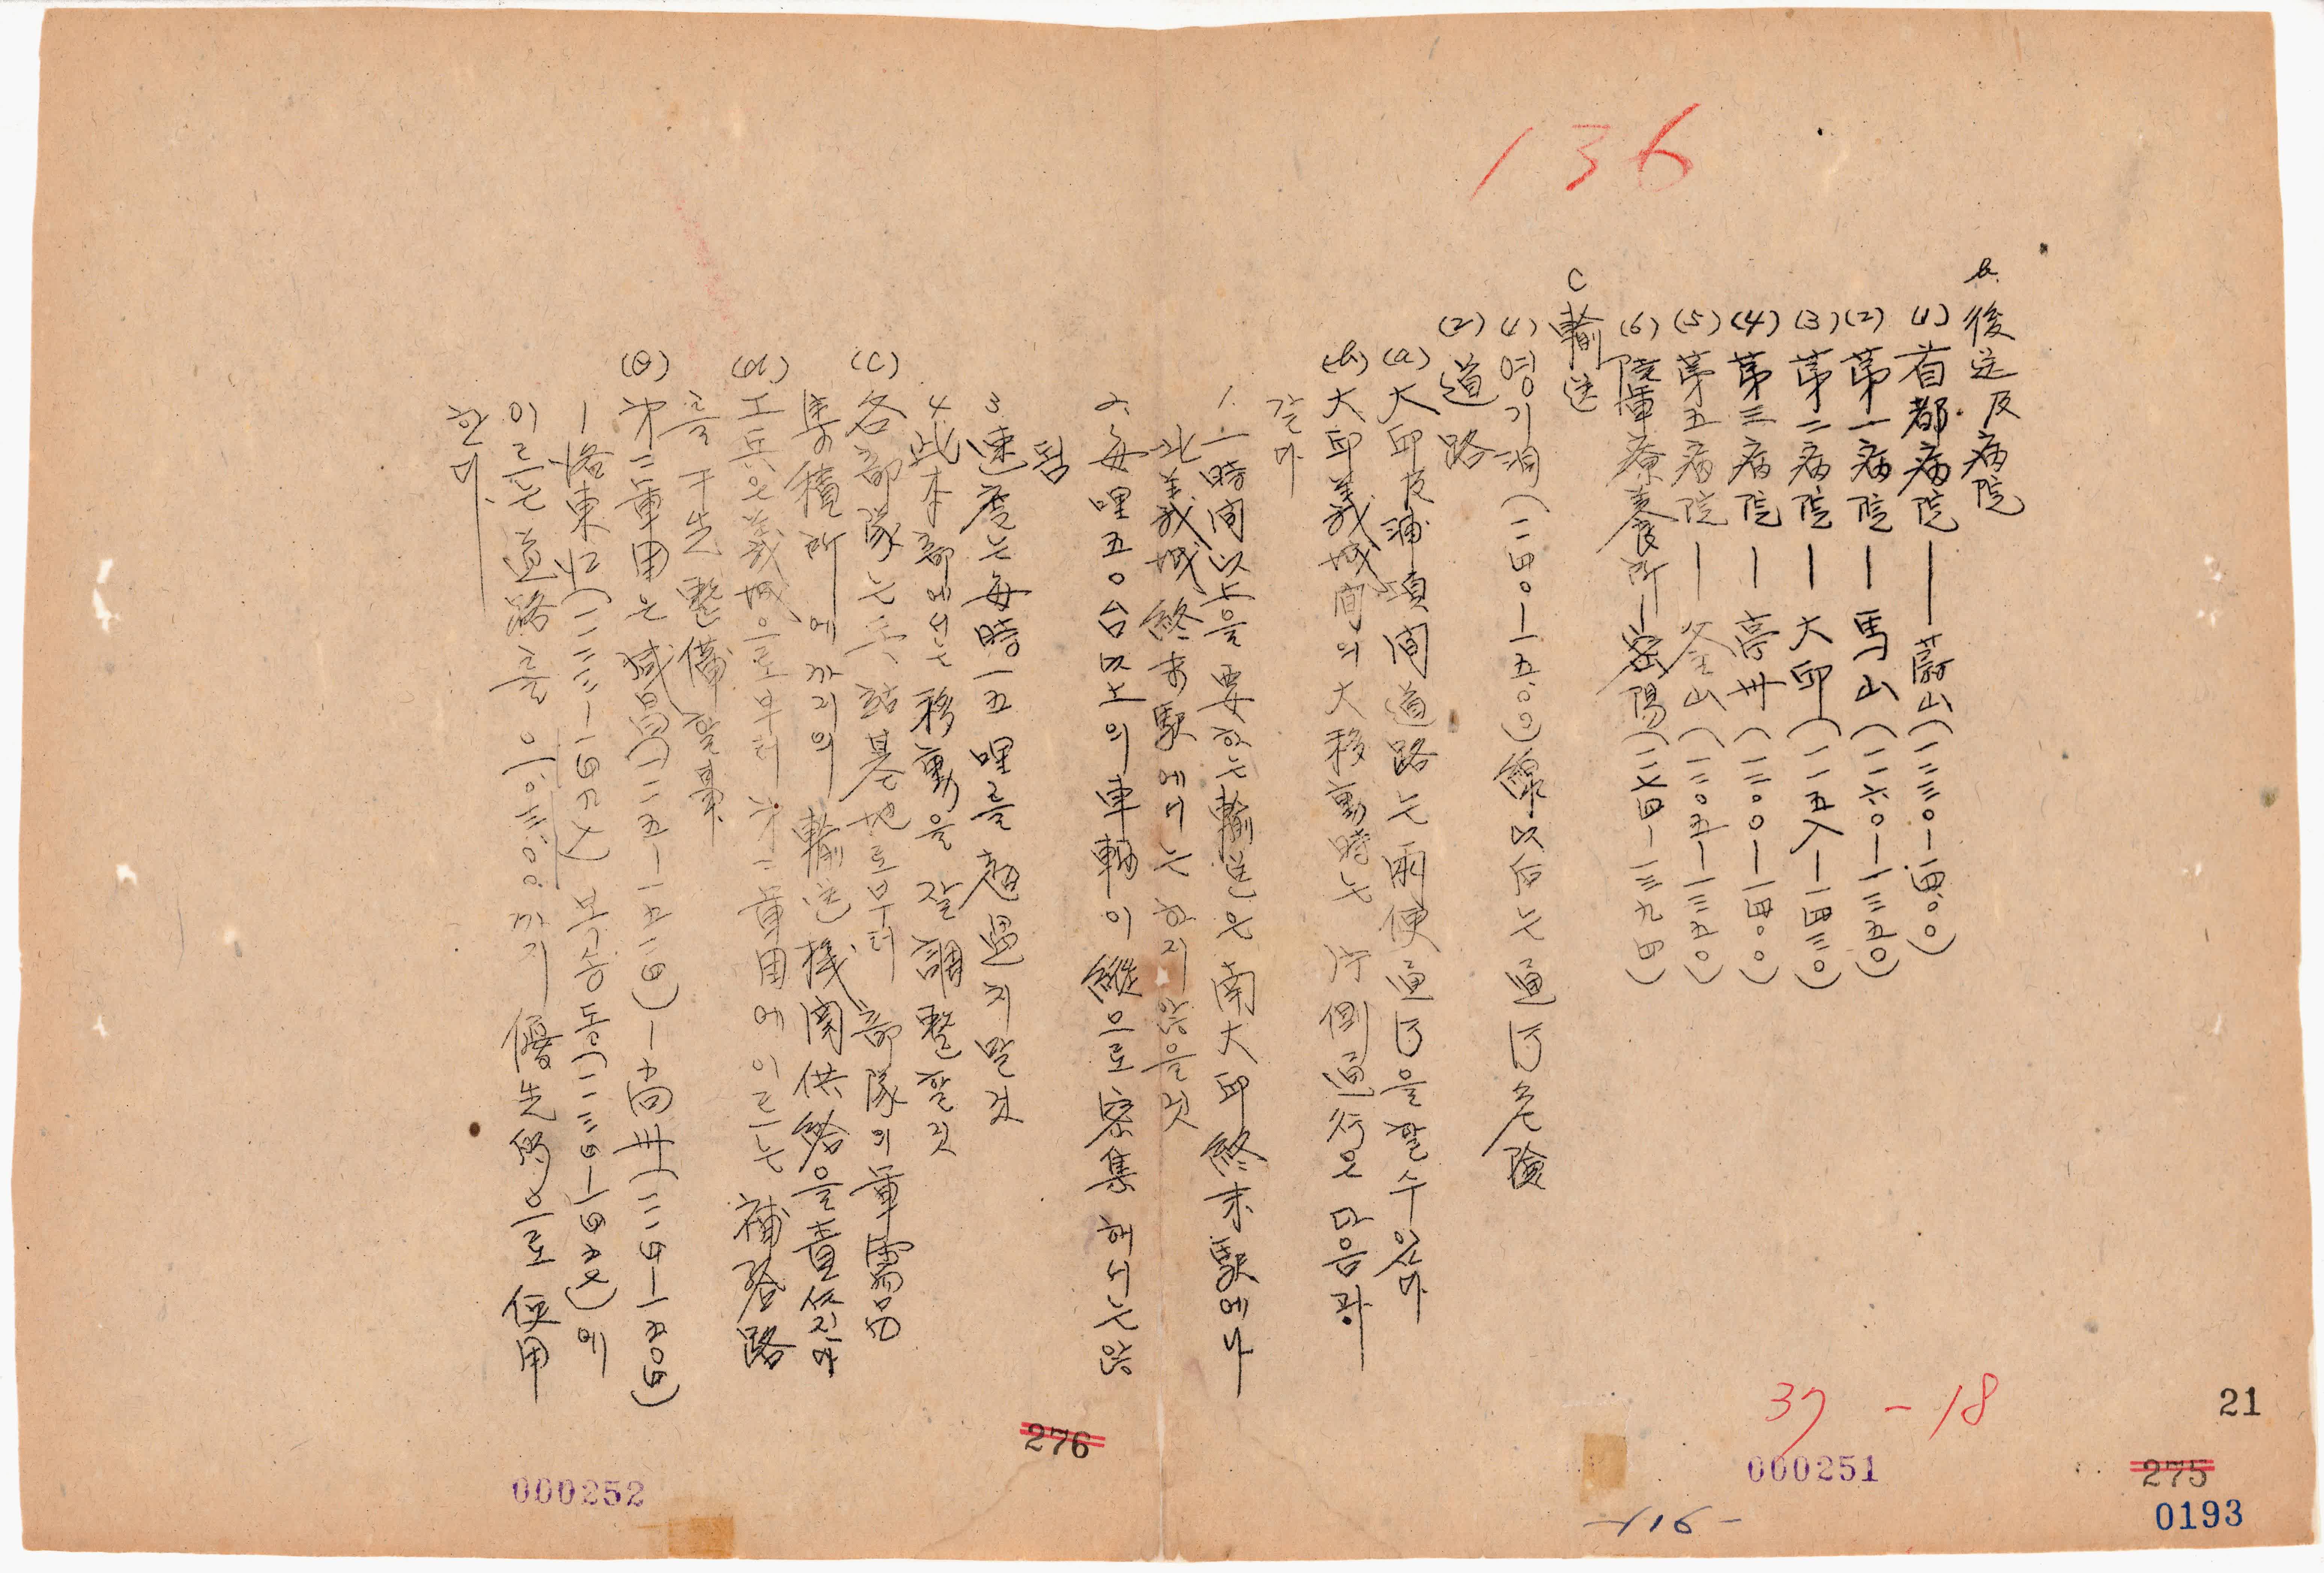 136
b. 後送及病院
(1) 首都病院 — 蔚山(一二三〇—一四〇〇)
(2) 第一病院 — 馬山(一一六〇—一三五〇)
(3) 第二病院 — 大邱(一一五八—一四三〇)
(4) 第三病院 — 慶州(一二〇〇—一四〇〇)
(5) 第五病院 — 釜山(一二〇五—一三五〇)
(6) 陸軍療養所 — 密陽(一一七四—一三九四)
C 輸送
(1) 영기洞(一一四〇—一五〇〇)線以后는 通行危險
(2) 道路
(a) 大邱及浦項間道路는 兩便通行을 할수있다
(b) 大邱義城間의 大移動時는 片側通行은 다음과
같다
1. 一時間以上을 要하는 輸送은 南大邱終末驛에나
北義城終末驛에서는 하지않을것
2. 每哩五〇台以上의 車輛이 縱으로 密集해서는 않
됨
3 速度는 每時一五哩를 超過치말것
4. 此本部에서는 移動을 잘 調整할것
(C) 各部隊는 兵站基地로부터 部隊의 軍需品
集積所에까지의 輸送機關供給을 責任진다
(d) 工兵은 義城으로부터 第二軍團에 이르는 補給路
를 于先 整備할事
(e) 第二軍團은 咸昌(一一五—一五二四)—尙州(一一四—一五〇四)
—洛東江(一一三三—一四九七) 목공동(一一三四—一四九七)에
이르는 道路를 01:03:00까지 優先的으로 使用
한다.
37 -18
21
276
275
000252
000251
0193
-116-